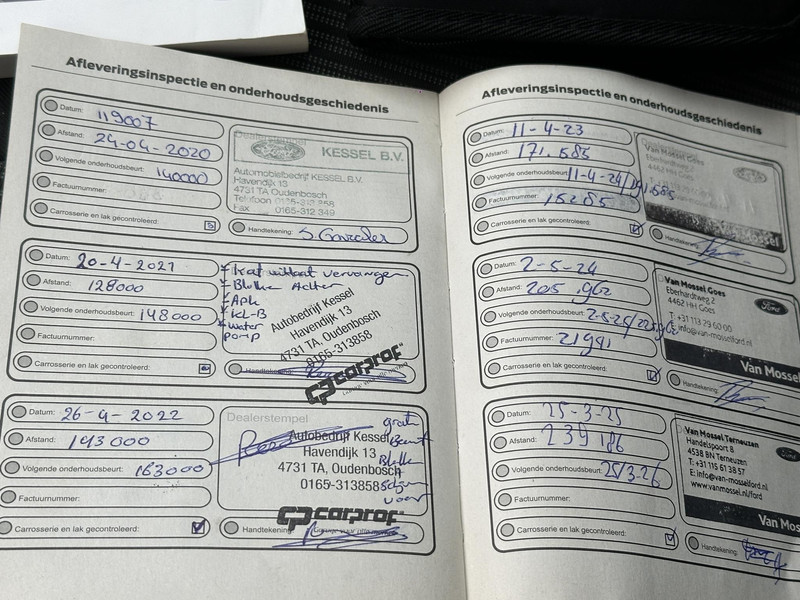 Afleveringsinspectie en onderhoudsgeschiedenis
Datum: 119007
Afstand: 24-04-2020
Volgende onderhoudsbeurt: 140000
Factuurnummer:
Carrosserie en lak gecontroleerd:
Dealerstempel
Ford KESSEL B.V.
Automobielbedrijf KESSEL B.V.
Havendijk 13
4731 TA Oudenbosch
Telefoon 0165-312 258
Fax 0165-312 349
Handtekening:
Datum: 20-4-2021
Afstand: 128000
Volgende onderhoudsbeurt: 148000
Factuurnummer:
Carrosserie en lak gecontroleerd:
Achter
APK
KL-B
water
pomp
Autobedrijf Kessel
Havendijk 13
4731 TA, Oudenbosch
0165-313858
carprof
Handtekening:
Datum: 26-4-2022
Afstand: 143000
Volgende onderhoudsbeurt: 163000
Factuurnummer:
Carrosserie en lak gecontroleerd:
Dealerstempel
Autobedrijf Kessel
Havendijk 13
4731 TA, Oudenbosch
0165-313858
voor
carprof
Handtekening:
Afleveringsinspectie en onderhoudsgeschiedenis
Datum: 11-4-23
Afstand: 171.585
Volgende onderhoudsbeurt: 11-4-24/191.585
Factuurnummer: 15285
Carrosserie en lak gecontroleerd:
Van Mossel Goes
Eberhardtweg 2
4462 HH Goes
Handtekening:
Datum: 2-5-24
Afstand: 205.962
Volgende onderhoudsbeurt: 2-5-25/
Factuurnummer: 21941
Carrosserie en lak gecontroleerd:
Van Mossel Goes
Eberhardtweg 2
4462 HH Goes
T: +31 113 29 60 00
E: info@van-mosselford.nl
Ford
Van Mossel
Handtekening:
Datum: 25-3-25
Afstand: 239186
Volgende onderhoudsbeurt: 25/3-26
Factuurnummer:
Carrosserie en lak gecontroleerd:
Van Mossel Terneuzen
Handelspoort 8
4538 BN Terneuzen
T: +31 115 61 38 57
E: info@van-mosselford.nl
www.vanmossel.nl/ford
Ford
Van Mos
Handtekening: